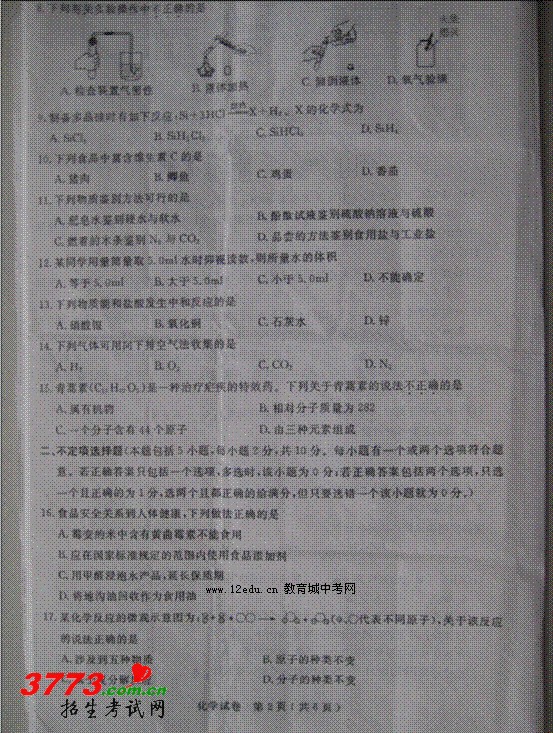 8.下列有关实验操作中不正确的是
A.检查装置气密性 B.液体加热 C.倾倒液体 D.氧气验满
9.制备多晶硅时有如下反应:Si+3HCl X+H₂。X的化学式为
A.SiCl₄ B.SiH₂Cl₂ C.SiHCl₃ D.SiH₄
10.下列食品中富含维生素C的是
A.猪肉 B.鲫鱼 C.鸡蛋 D.番茄
11.下列物质鉴别方法可行的是
A.肥皂水鉴别硬水与软水 B.酚酞试液鉴别硫酸钠溶液与硫酸
C.燃着的木条鉴别N₂与CO₂ D.品尝的方法鉴别食用盐与工业盐
12.某同学用量筒量取5.0ml水时仰视读数,则所量水的体积
A.等于5.0ml B.大于5.0ml C.小于5.0ml D.不能确定
13.下列物质能和盐酸发生中和反应的是
A.硝酸银 B.氧化铜 C.石灰水 D.锌
14.下列气体可用向下排空气法收集的是
A.H₂ B.O₂ C.CO₂ D.N₂
15.青蒿素(C₁₅H₂₂O₅)是一种治疗疟疾的特效药。下列关于青蒿素的说法不正确的是
A.属有机物 B.相对分子质量为282
C.一个分子含有44个原子 D.由三种元素组成
二、不定项选择题(本题包括5小题,每小题2分,共10分。每小题有一个或两个选项符合题
意。若正确答案只包括一个选项,多选时,该小题为0分;若正确答案包括两个选项,只选
一个且正确的为1分,选两个且都正确的给满分,但只要选错一个该小题就为0分。)
16.食品安全关系到人体健康,下列做法正确的是
A.霉变的米中含有黄曲霉素不能食用
B.应在国家标准规定的范围内使用食品添加剂
C.用甲醛浸泡水产品,延长保质期
D.将地沟油回收作为食用油
www.12edu.cn 教育城中考网
17.某化学反应的微观示意图为:(代表不同原子),关于该反应
的说法正确的是
A.涉及到五种物质 B.原子的种类不变
D.分子的种类不变
3773.com.cn
招生考试网
化学试卷 第2页(共6页)